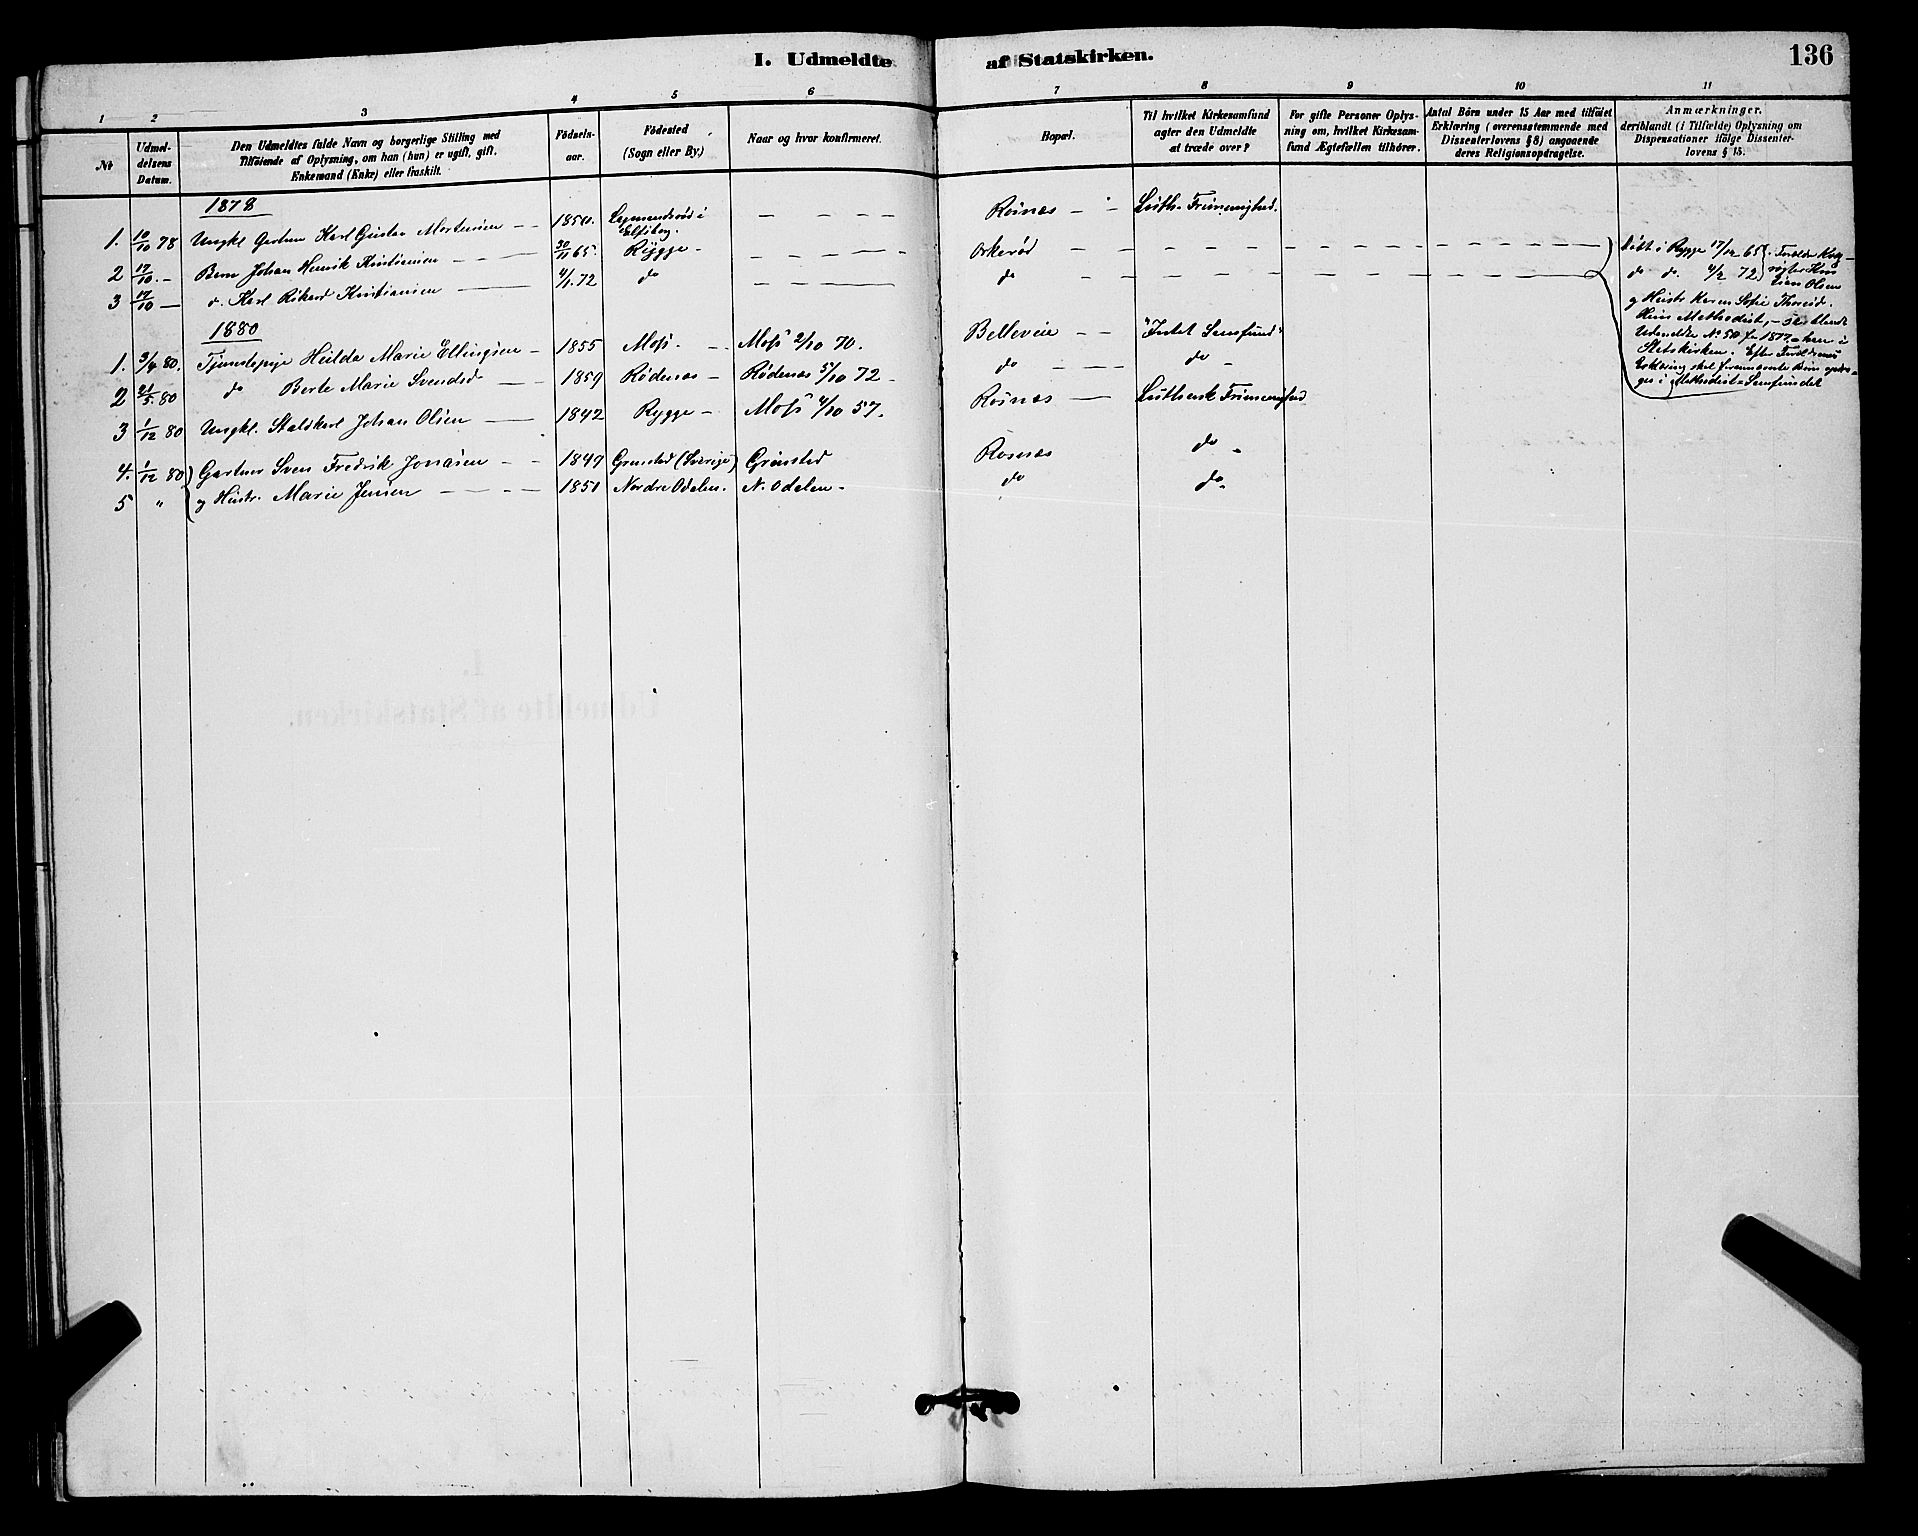 I. Udmeldte af Statskirken.
136
1 2 3 4 5 6 7 8 9 10 11
Nr
Udmel-
delsens
Datum.
Den Udmeldtes fulde Navn og borgerlige Stilling med
Tilföiende af Oplysning, om han (hun) er ugift, gift,
Enkemand (Enke) eller fraskilt.
Födsels-
aar.
Födested
(Sogn eller By)
Naar og hvor konfirmeret.
Bopæl.
Til hvilket Kirkesamfund
agter den Udmeldte
at træde over?
For gifte Personer Oplys-
ning om, hvilket Kirkesam-
fund Ægtefællen tilhörer.
Antal Börn under 15 Aar med tilföiet
Erklæring (overensstemmende med
Dissenterlovens § 8) angaaende
deres Religionsopdragelse.
Anmærkninger.
deriblandt (i Tilfælde) Oplysning om
Dispensationer ifölge Dissenter-
lovens § 15.
1878
1. 10/10 78 Ungkl Gartner Karl Gustav Mortensen — — 1850. i Elfsborg. — — — — Rosnæs — Luth. Frimenighed.
2 17/10 — Barn Johan Henrik Kristiansen — — — 30/11 65. Rygge — — — — — Orkerød — — døbt i Rygge 17/12 65
3 17/10 — d. Karl Rikard Kristiansen — 4/1. 72 do — — — — — do — — do do. 4/2 72
Kristian Olsen
og Hustr Karen Sofie Thoresd.
Methodist, —
Udmeldte No 50 for 1877 — hun i
Statskirken. Efter Forældrenes
Erklæring skal forannævnte Børn opdra-
ges i Methodist-Samfundet
1880
1. 3/4 80. Tjenestepige Hulda Marie Ellingsen — 1855 Moss. — Moss 2/10 70. Belleveie — — "Intet Samfund"
2 24/5. 80 do Berte Marie Svendsd — — 1859 Rødenæs — Rødenæs 5/10 72 — do — — — do —
3 1/12 80 Ungkl. Staldkarl Johan Olsen — 1842 Rygge — Moss 4/10 57. Rosnæs — Luthersk Frimenighed
4. 1/12 80 Gartner Sven Fredrik Jonasen — — 1849 Grinsted (Sverige) Grinsted Rosnæs do —
5 " og Hustr. Marie Jensen — — — 1851 Nordre Odalen. N. Odalen — do do —